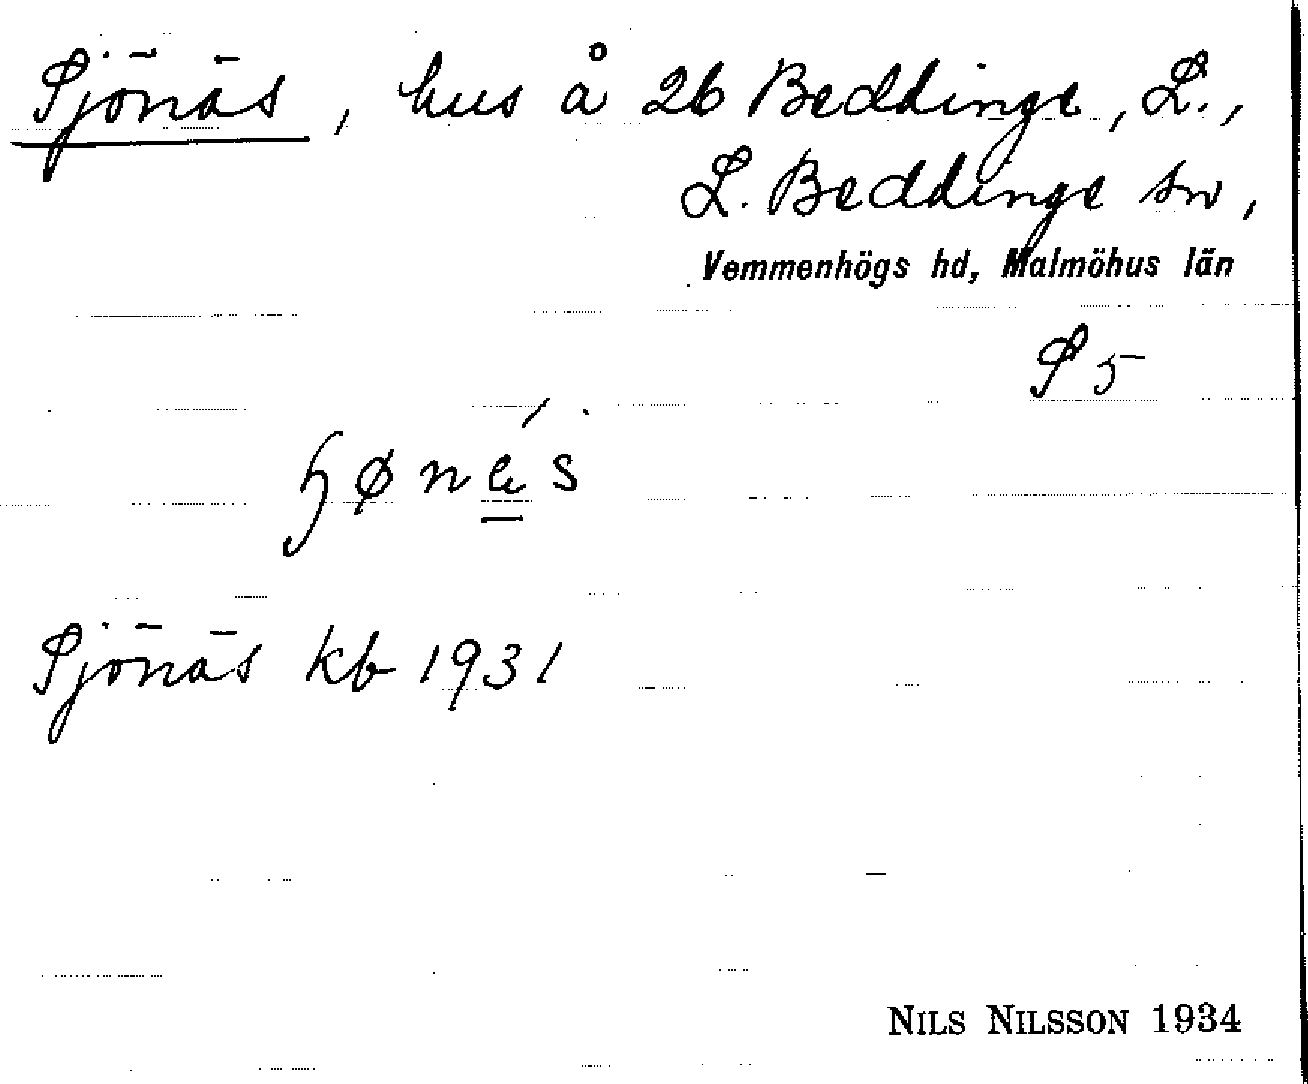 Sjönäs, hus å 26 Beddinge, L.,
L. Beddinge sn,
Vemmenhögs hd, Malmöhus län
S 5
Sjönäs kb 1931
NILS NILSSON 1934